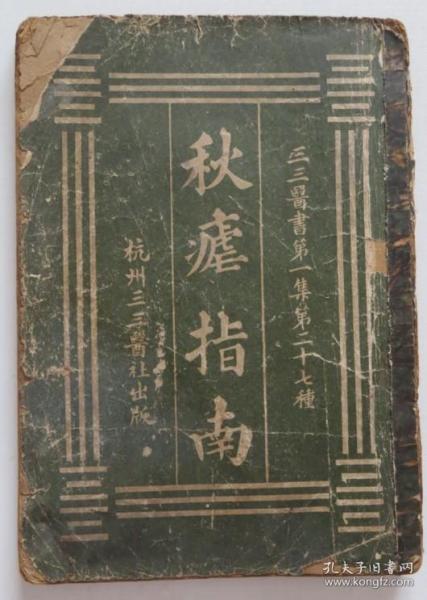 三三醫書第一集第二十七種
秋瘧指南
杭州三三醫社出版
孔夫子旧书网
www.kongfz.com